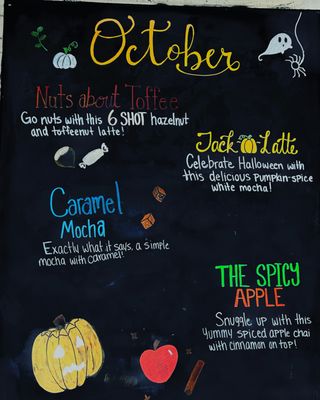 October
Nuts about Toffee
Go nuts with this 6 SHOT hazelnut
and toffeenut latte!
Jack Latte
Celebrate Halloween with
this delicious pumpkin-spice
white mocha!
Caramel
Mocha
Exactly what it says, a simple
mocha with caramel!
THE SPICY
APPLE
Snuggle up with this
yummy spiced apple chai
with cinnamon on top!